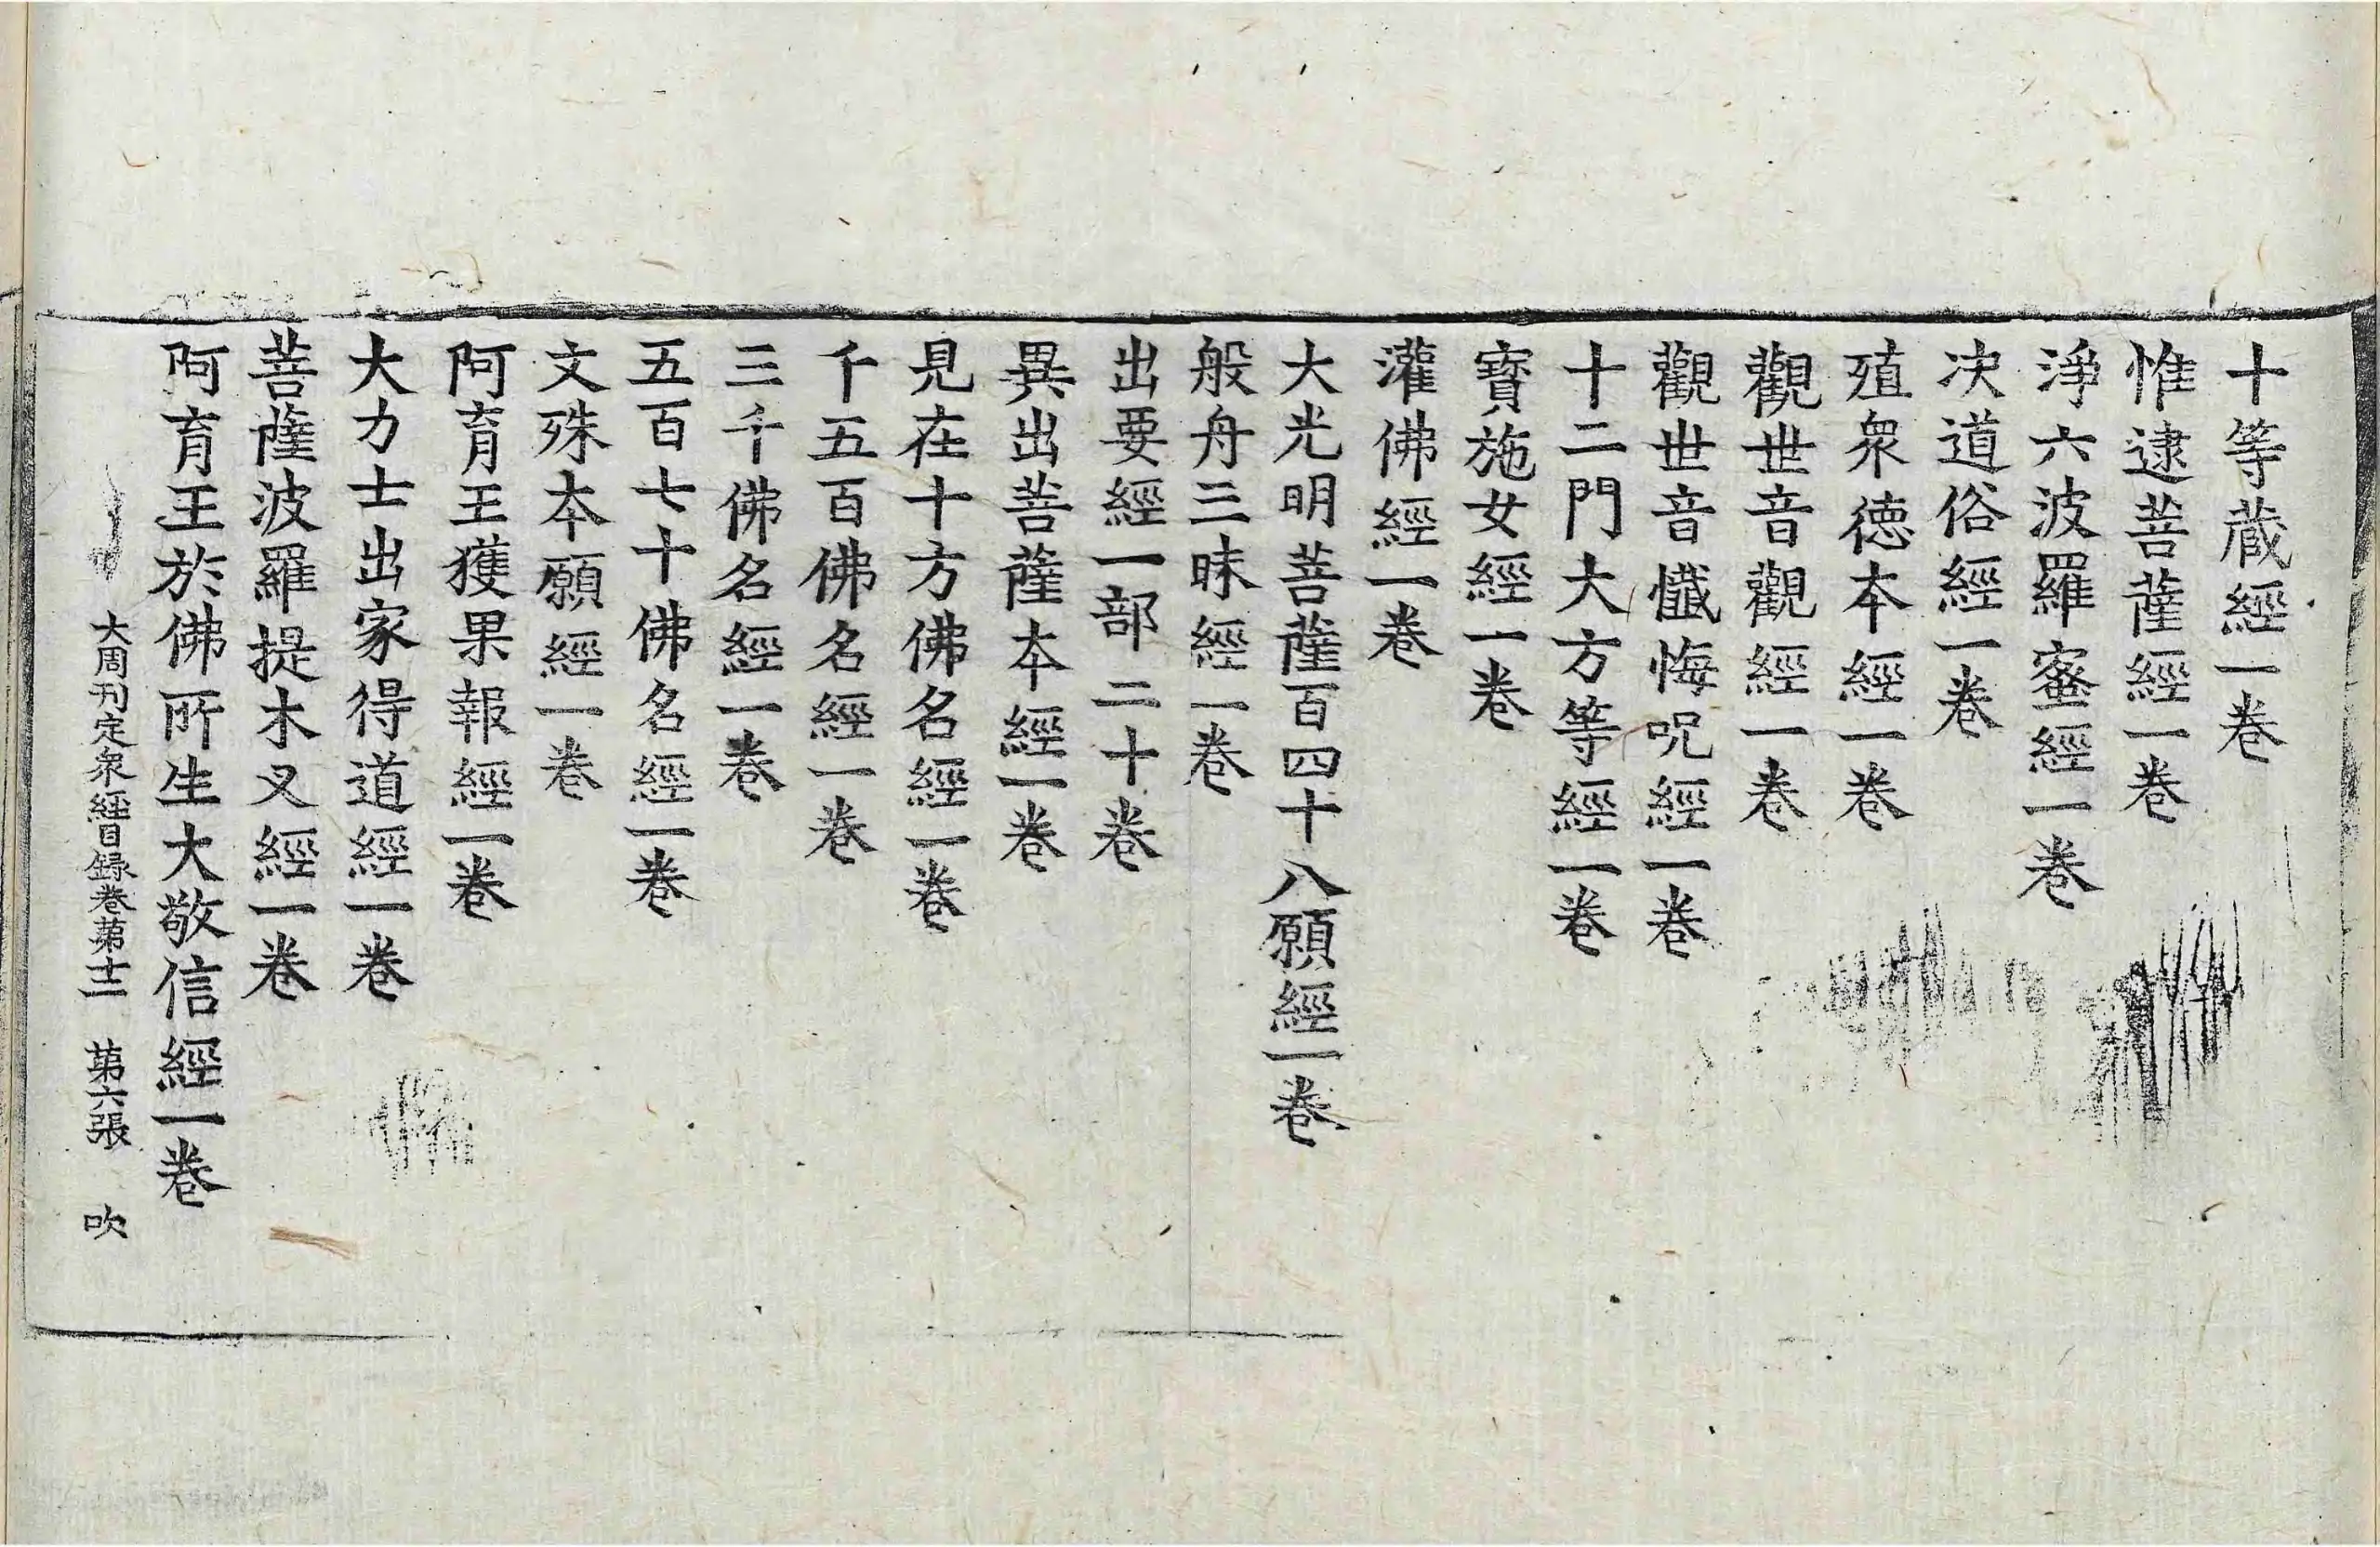 十等蔵經一卷
惟逮菩薩經一卷
淨六波羅蜜經一卷
决道俗經一卷
殖衆德本經一卷
觀世音觀經一卷
觀世音懺悔呪經一卷
十二門大方等經一卷
寳施女經一卷
灌佛經一卷
大光明菩薩百四十八願經一卷
般舟三昧經一卷
出要經一部二十卷
異出菩薩本經一卷
見在十方佛名經一卷
千五百佛名經一卷
三千佛名經一卷
五百七十佛名經一卷
文殊本願經一卷
阿育王獲果報經一卷
大力士出家得道經一卷
菩薩波羅提木叉經一卷
阿育王於佛所生大敬信經一卷
大周刊定衆經目録卷第十二 第六張 吹